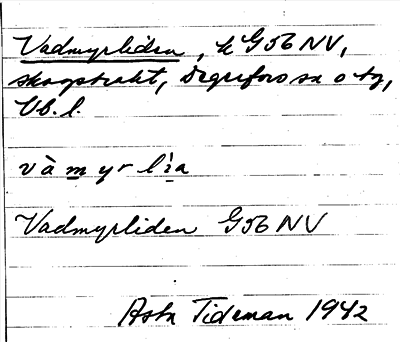 Vadmyrliden, k G56 NV,
skogstrakt, Degerfors sn o tg,
Vb. l.
và m y r l ì a
Vadmyrliden G56 NV
Asta Tideman 1942